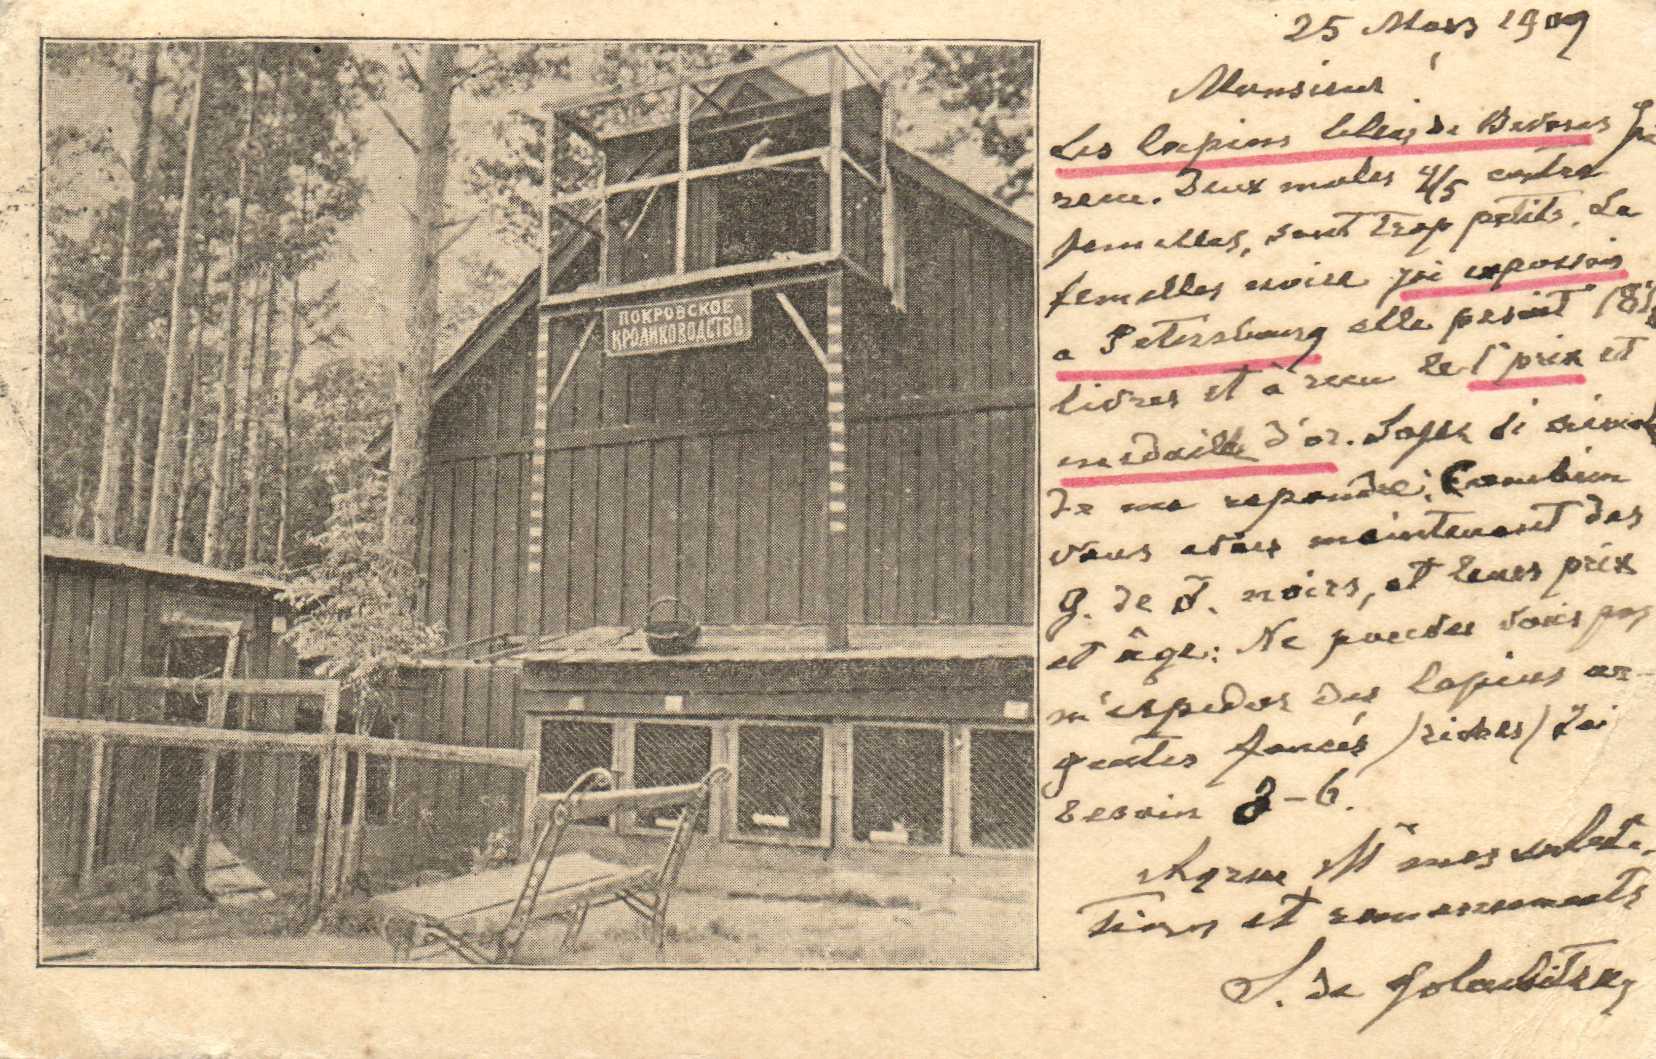 ПОКРОВСКОЕ
КРОЛИКОВОДСТВО
25 Mars 1909
Monsieur
Les lapins bleus de Beveren j'ai
recu. Deux males 4/5 contre
femelles, sont trop petits. La
femelles noire j'ai exposais
a Petersbourg elle pesait (8½
livres et à recu le 1 prix et
medaille d'or. Soyez si aimable
de me repondre: Combien
vous avez maintenant des
g. de . noirs, et leurs prix
et âge: Ne pouvez vous pas
m'expedier des lapins ar-
gentes foncés /riches/ J'ai
besoin 3-6.
Agree M mes saluta-
tions et remerciments
S. de